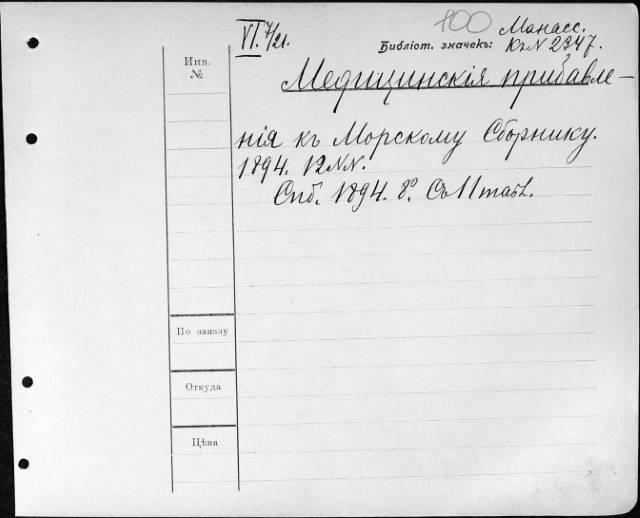 100 Манасс.
VI. 7/21. Библіот. значекъ: К. N 2947.
Инв. №
Медицинскія прибавле-
нія къ Морскому Сборнику.
1894. 12 NN.
Спб. 1894. 8º. Съ 11 табл.
По заказу
Откуда
Цѣна